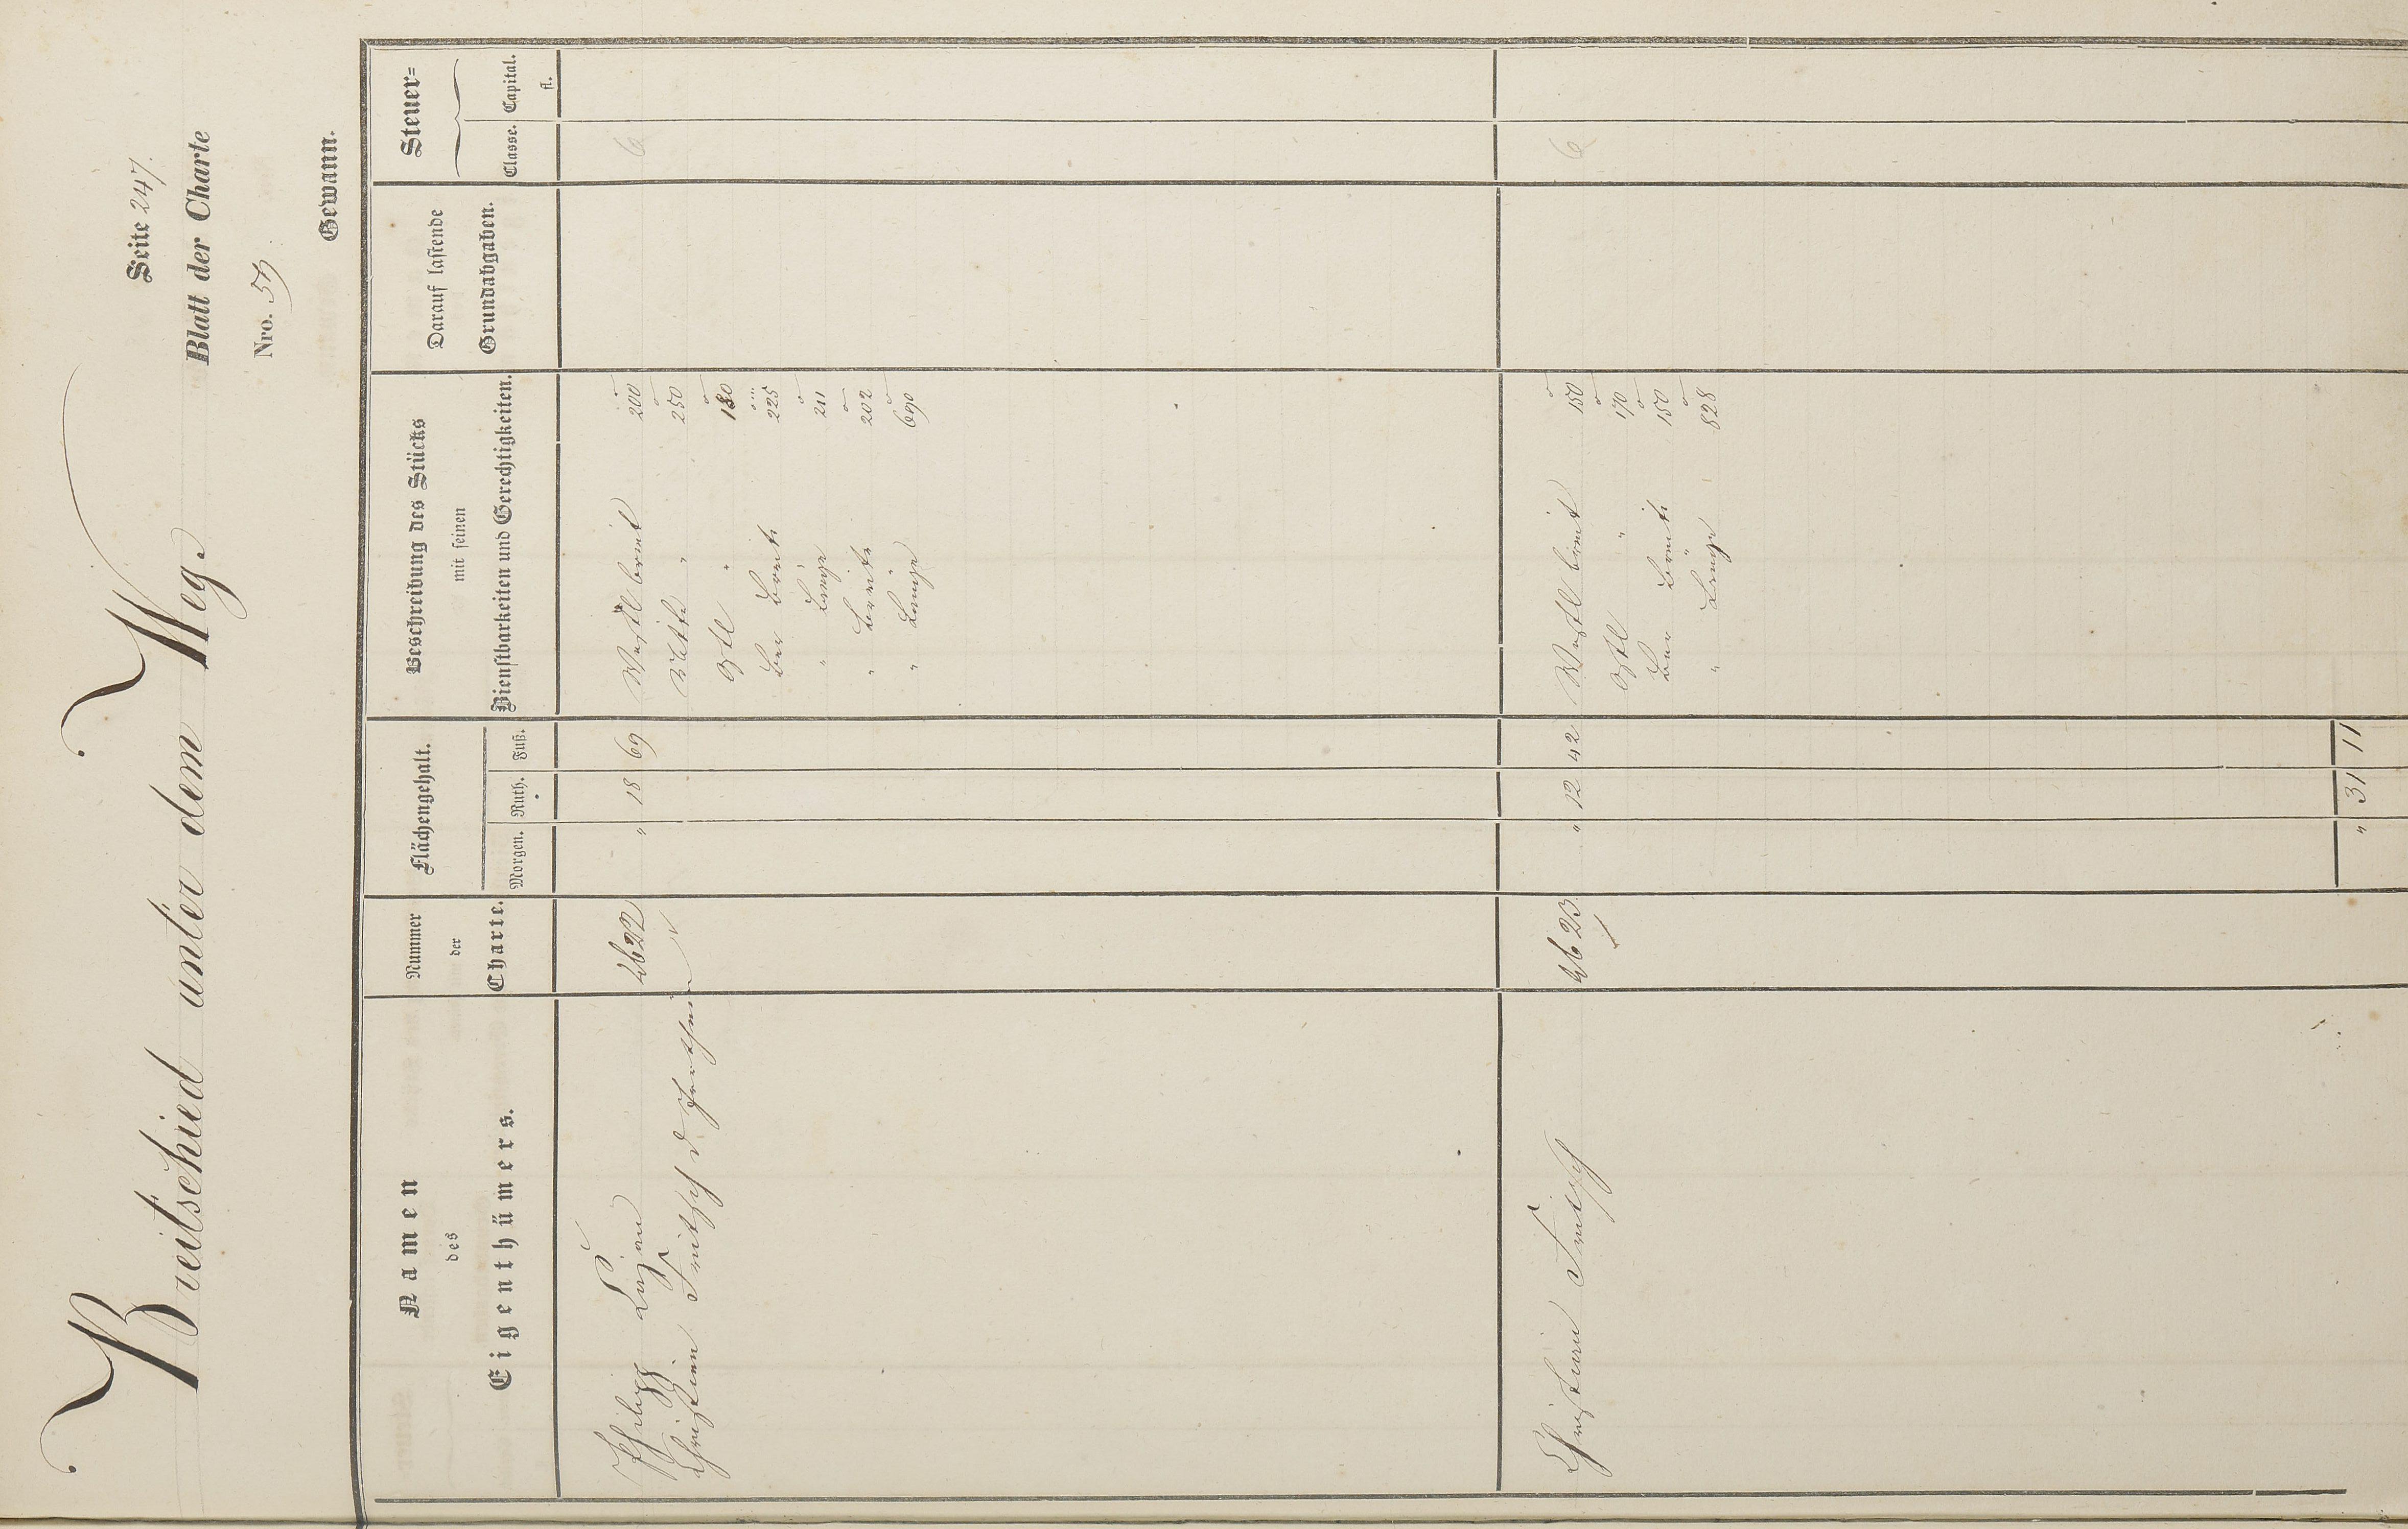 Seite 247.
Breitschied unter dem Weg.
Blatt der Charte
Nro. 57
Gewann.
Namen
des
Eigenthümers.
Nummer
der
Charte.
Flächengehalt.
Morgen. Ruth. Fuß.
Beschreibung des Stücks
mit seinen
Dienstbarkeiten und Gerechtigkeiten.
Darauf lastende
Grundabgaben.
Steuer=
Classe. Capital.
fl.
Philipp 4622 " 18 69 Westl breit 200 6
Christian Fritsch Mitte " 250
Ostl " 180
Ber Breite 225
" Länge 211
" Breite 202
" Länge 690
Christian Fritsch 4623. " 12 42 Westl breit 150 6
Ostl " 170
Ber Breite 150
" Länge 828
" 31 11